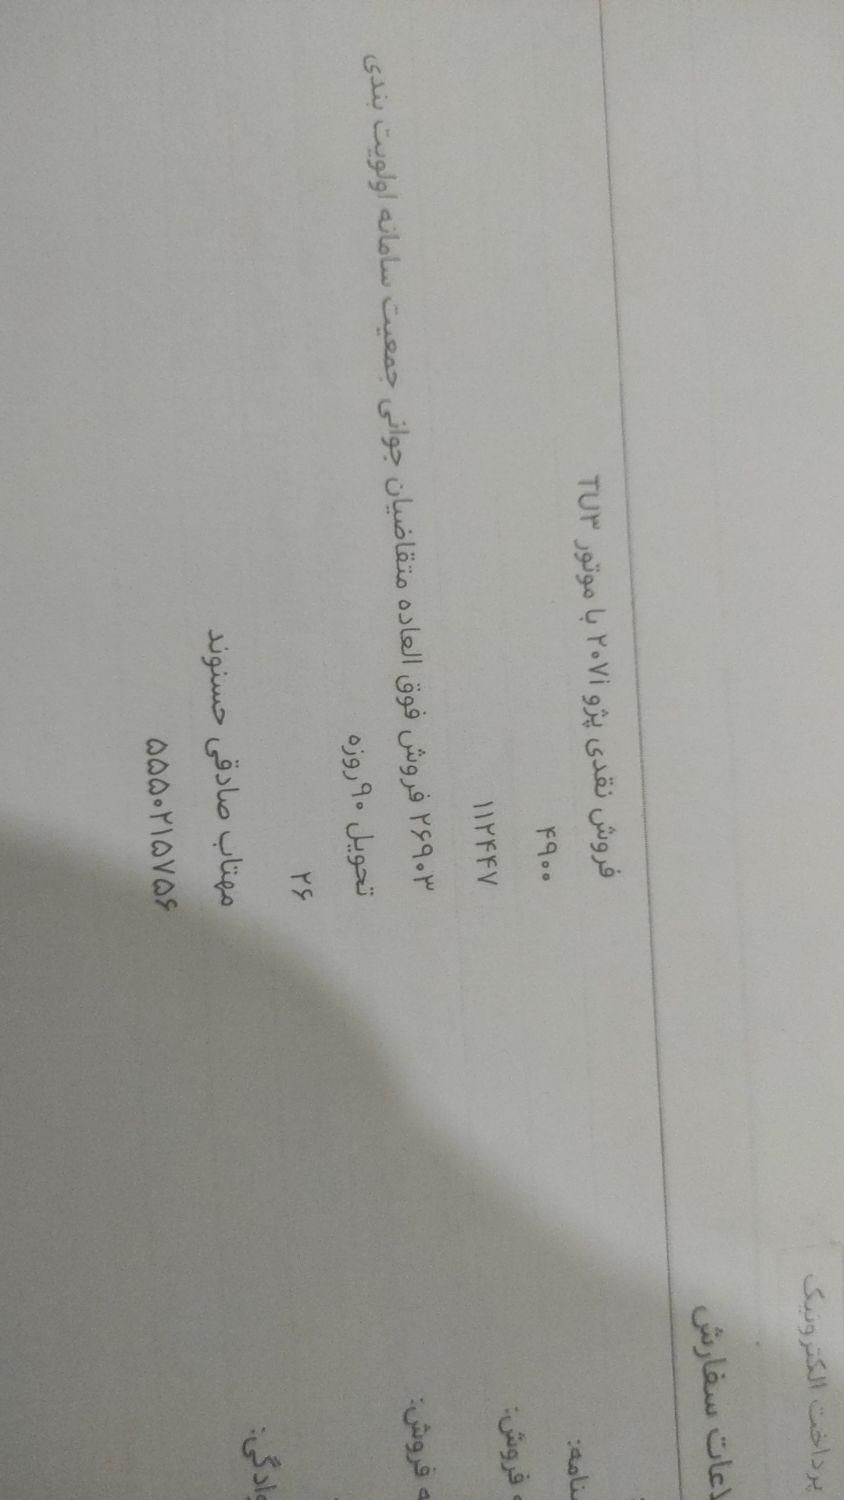 پرداخت الکترونیک
سفارش
فروش نقدی پژو ۲۰۷i با موتور TU۳
۴۹۰۰
فروش:
۱۱۲۴۴۷
فروش:
۲۶۹۰۳ فروش فوق العاده متقاضیان جوانی جمعیت سامانه اولویت بندی
تحویل ۹۰روزه
۲۶
مهتاب صادقی حسنوند
۵۵۵۰۲۱۵۷۵۶